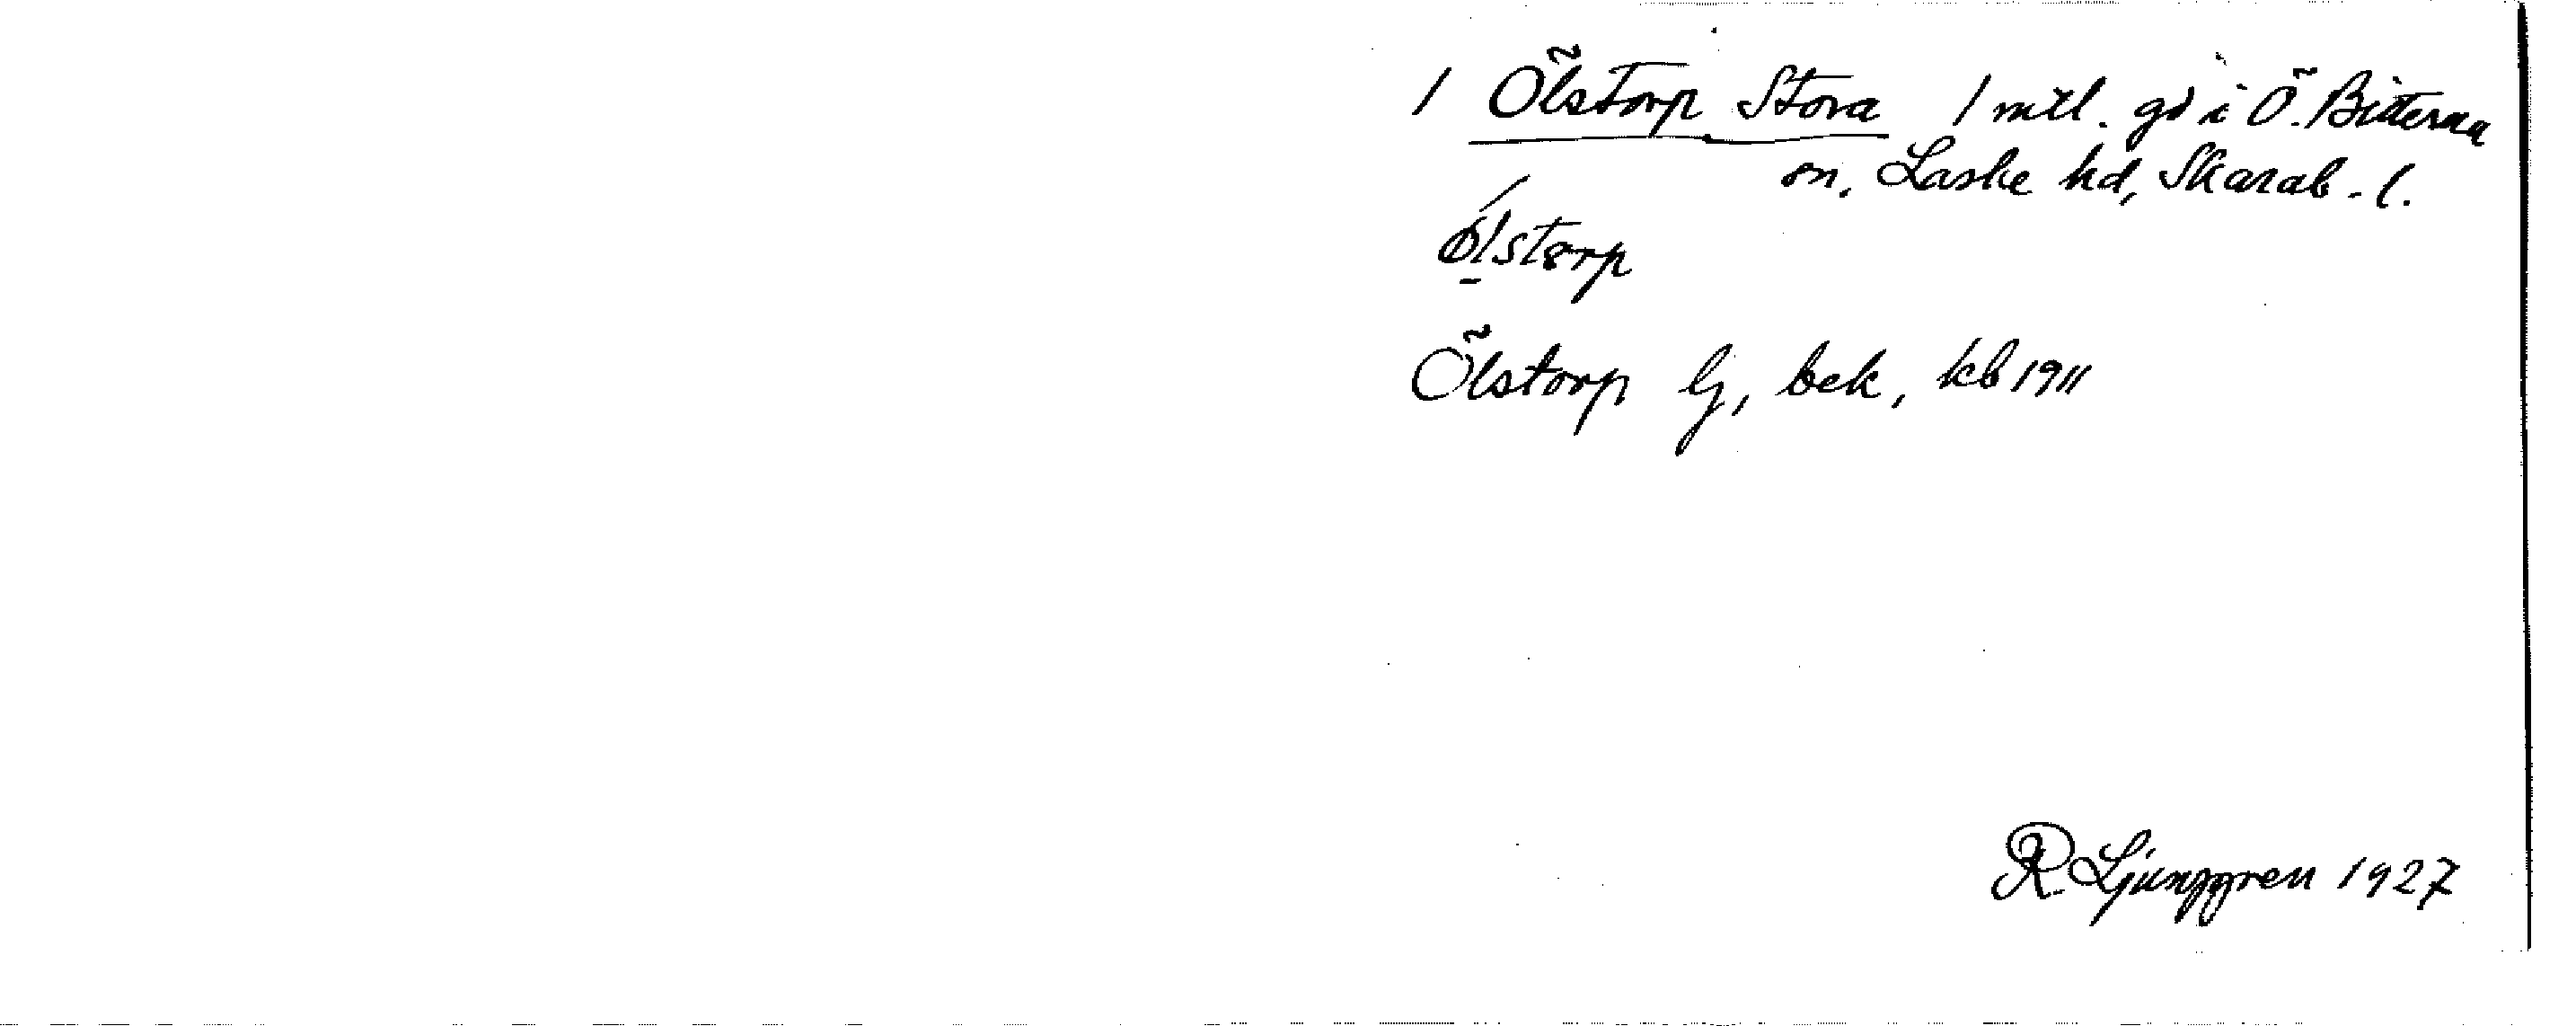 1 Ölstorp Stora 1 mtl. gd i Ö. Bitterna
sn, Laske hd, Skarab. l.
ǿ̱lstørp
Ölstorp lj, bek, kb 1911
R. Ljunggren 1927